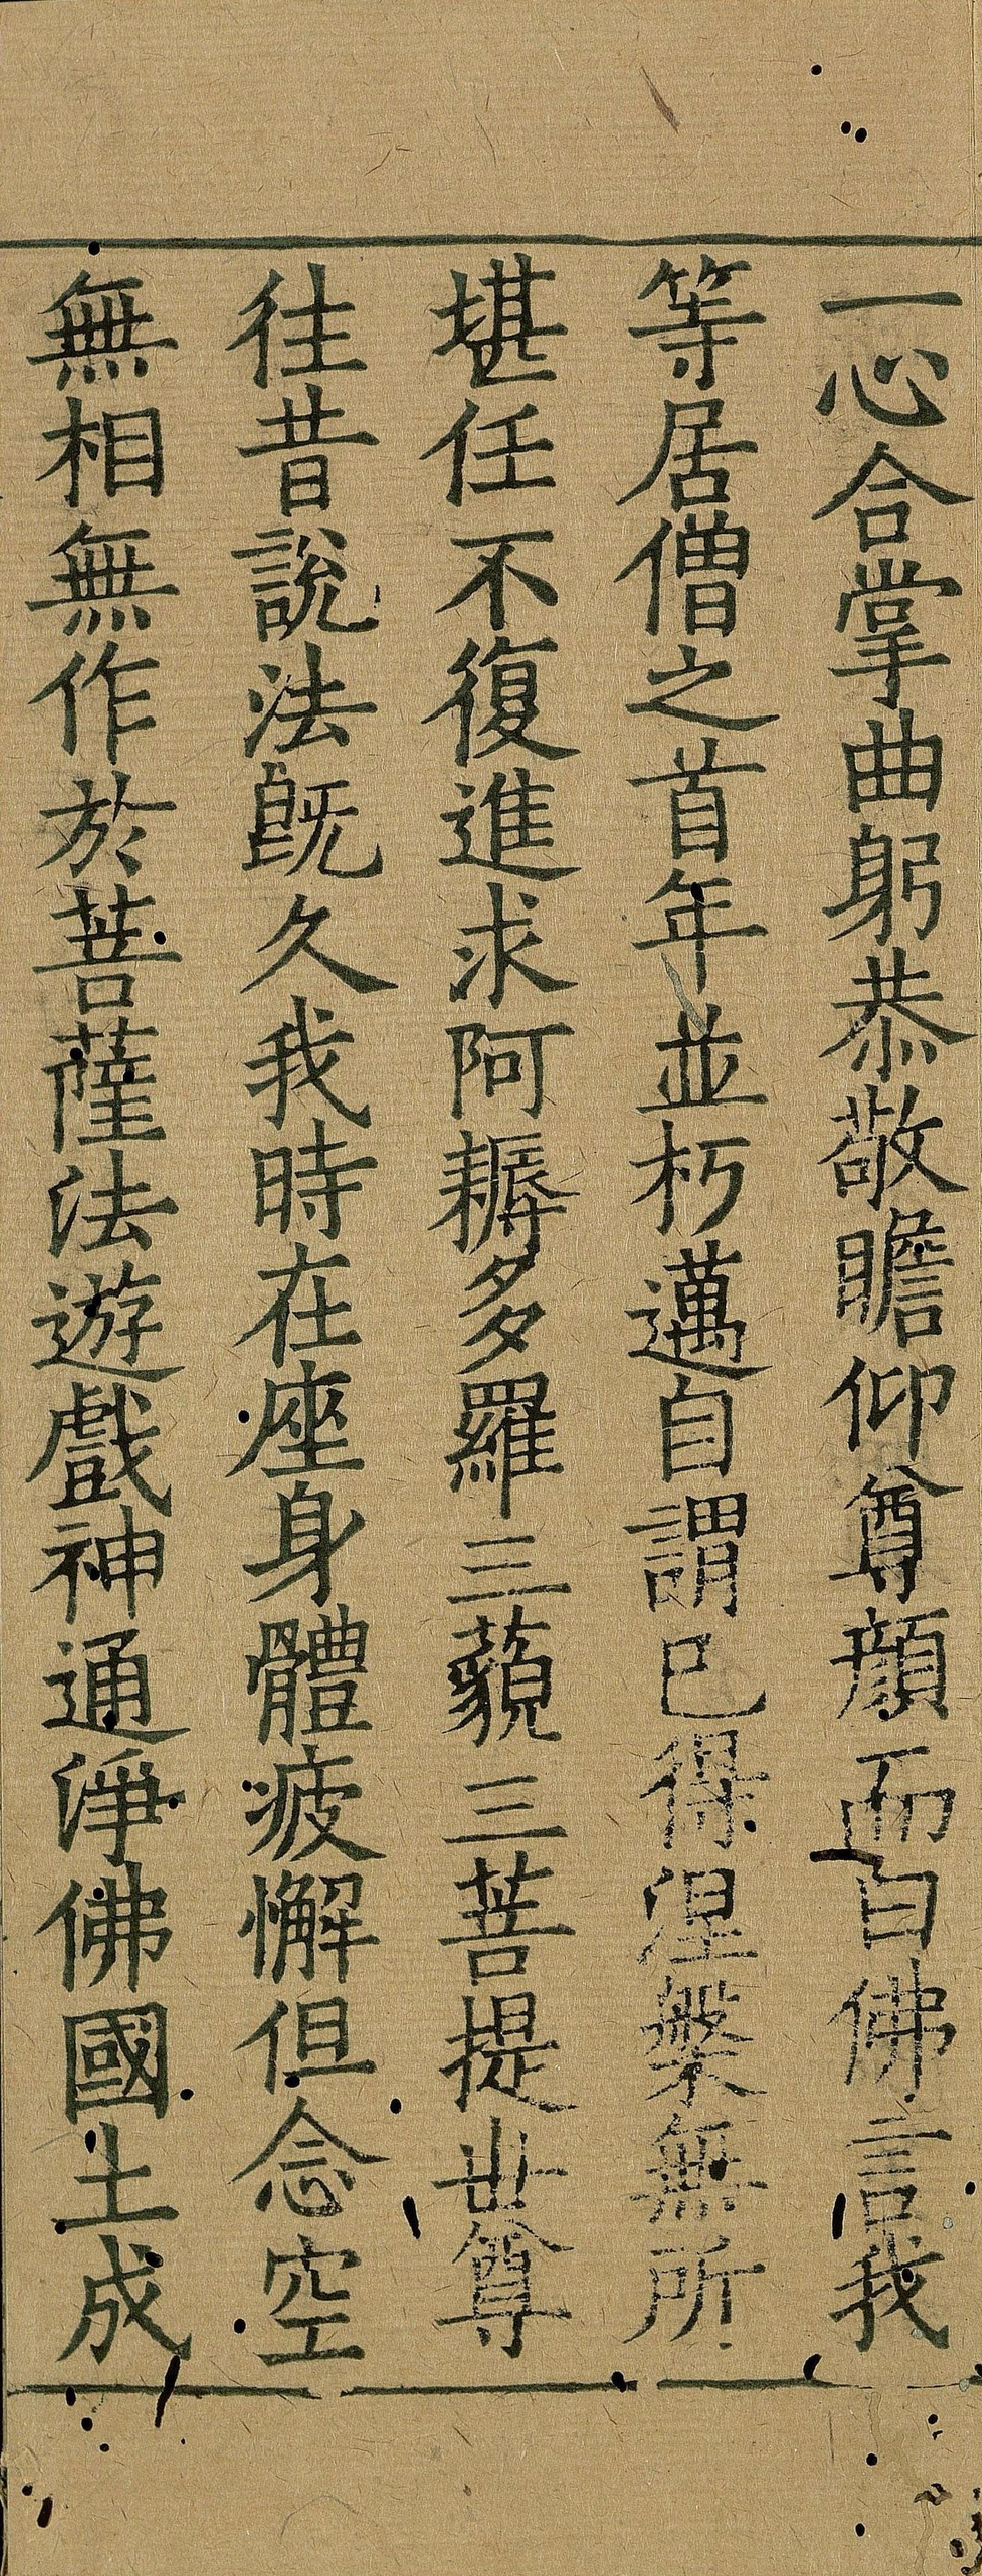 一心合掌曲躬恭敬瞻仰尊顔而白佛言我
等居僧之首年並朽邁自謂已得涅槃無所
堪任不復進求阿耨多羅三藐三菩提世尊
往昔說法既久我時在座身體疲懈但念空
無相無作於菩薩法遊戲神通淨佛國土成